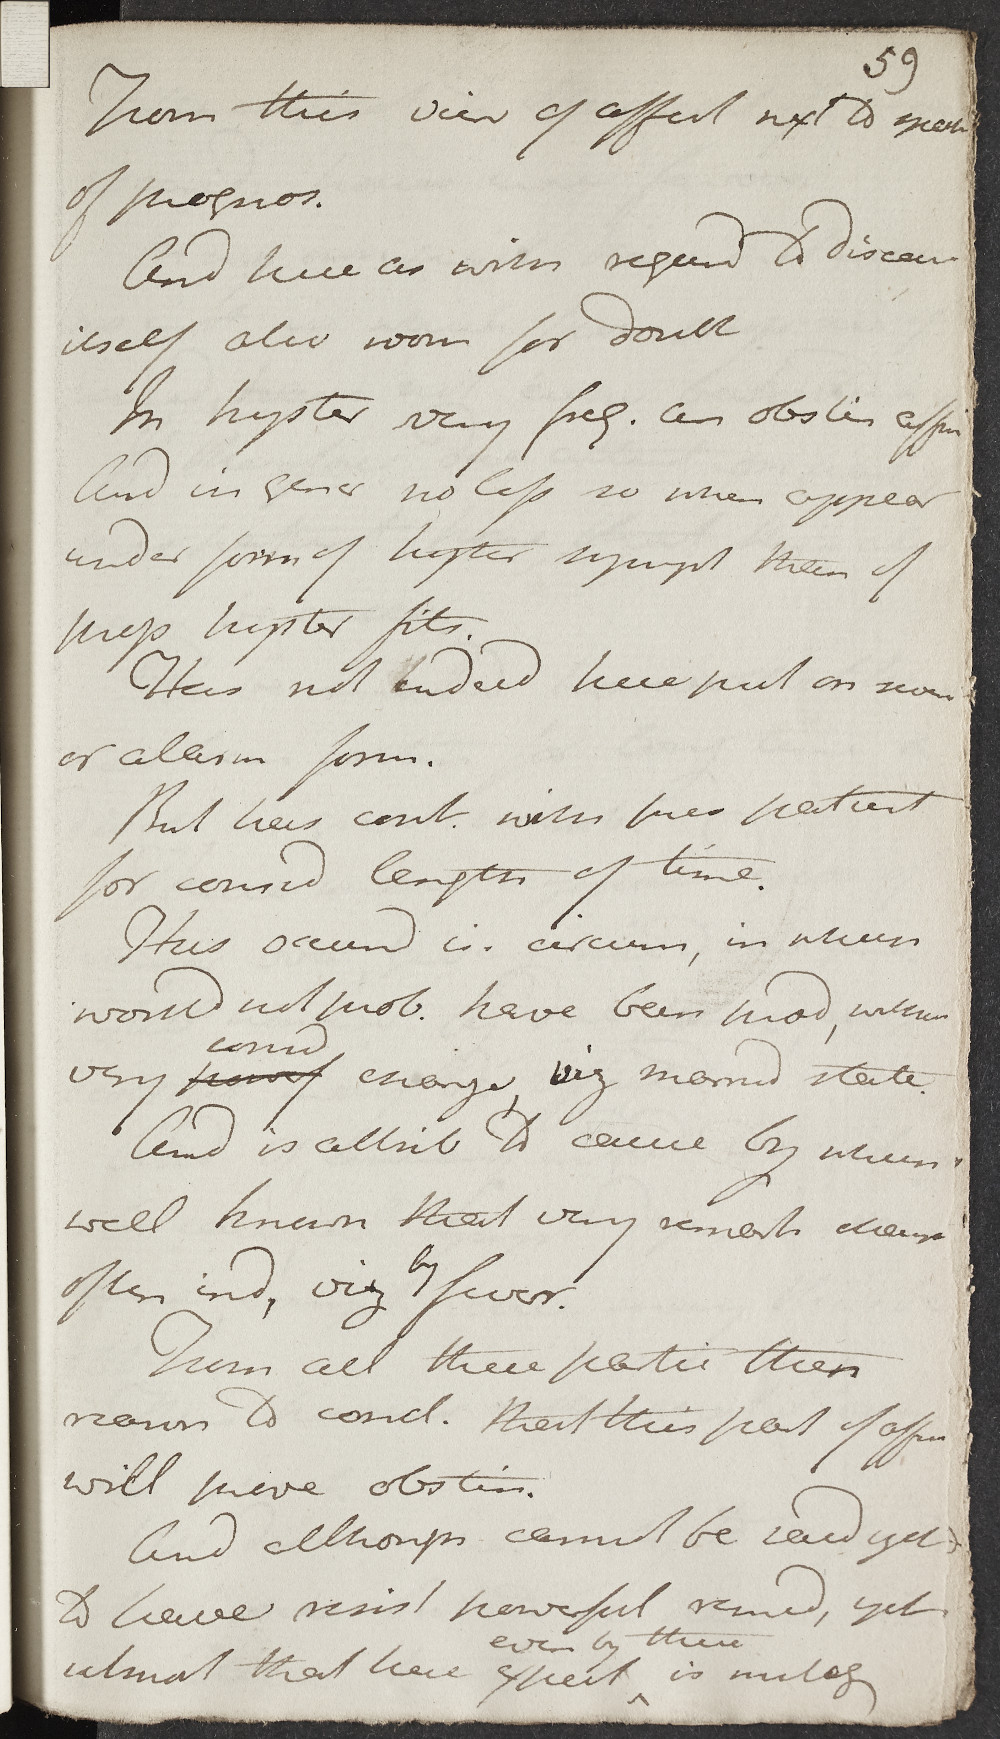 59
From this view of affect next to speak
of prognos.
And here as with regard to disease
itself also room for doubt
In hyster very freq. an obstin affn
And in gener no less so when appear
under form of hyster sympt then of
prop hyster fits.
Has not indeed here put on seve
or alarm form.
But has cont. with pres patient
for consid length of time.
Has occurd in circum, in which
would not prob. have been prod, without
consid
very powerf change, viz married state.
And is attrib to cause by which
well known that very remark change
often ind, viz by fever.
From all these partic then
reason to concl. that this part of affn
will prove obstin.
And although cannot be said yet
to have resist powerful remed, yet
even by these
utmost that here expect ^ is mitig